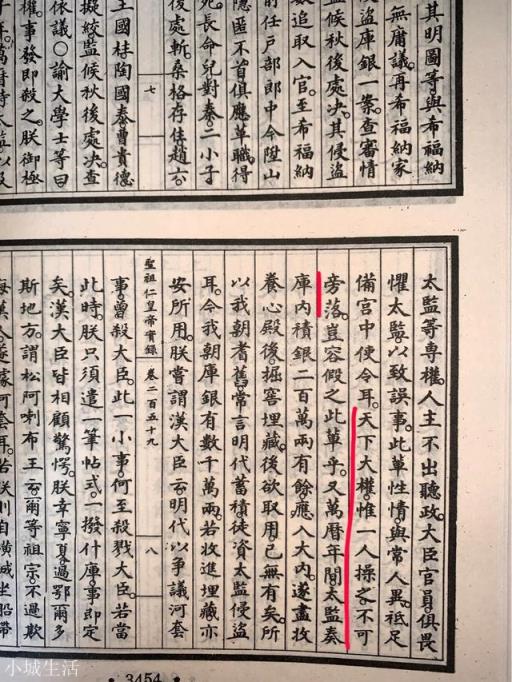 其明圖等。與希福納
無庸議。再希福納家
侵盜庫銀一案。查審情
監候秋後處決。其侵盜
數追取入官。至希福納
前任戶部郎中今陞山
隱匿不首。俱應革職。得
死。長命兒對秦二小子
後處斬。桑格存住趙六
七
王國柱陶國泰曹貴德
擬絞監候秋後處決。查
依議。○諭大學士等曰
權。事發即殺之。朕御極
太監等專權。人主不出聽政。大臣官員。俱畏
懼太監。以致誤事。此輩性情。與常人異。祗足
備宮中使令耳。天下大權。惟一人操之。不可
旁落。豈容假之此輩乎。又萬曆年間。太監奏
庫內積銀二百萬兩有餘。應入大內。遂盡收
養心殿後。掘窖埋藏。後欲取用。已無有矣。所
以我朝耆舊。常言明代蓄積。徒資太監侵盜
耳。今我朝庫銀有數千萬兩。若收進埋藏。亦
安所用。朕嘗謂漢大臣云。明代以爭議河套
聖祖仁皇帝實錄 卷二百五十九 八
事。曾殺大臣。此一小事。何至殺戮大臣。若當
此時。朕只須遣一筆帖式。一撥什庫。事即定
矣。漢大臣皆相顧驚愕。朕幸寧夏。過鄂爾多
斯地方。謂松阿喇布王云。爾等祖宗。不過欺
侮漢人。遂據河套耳。若朕則自橫城坐船帶
3454
小城生活